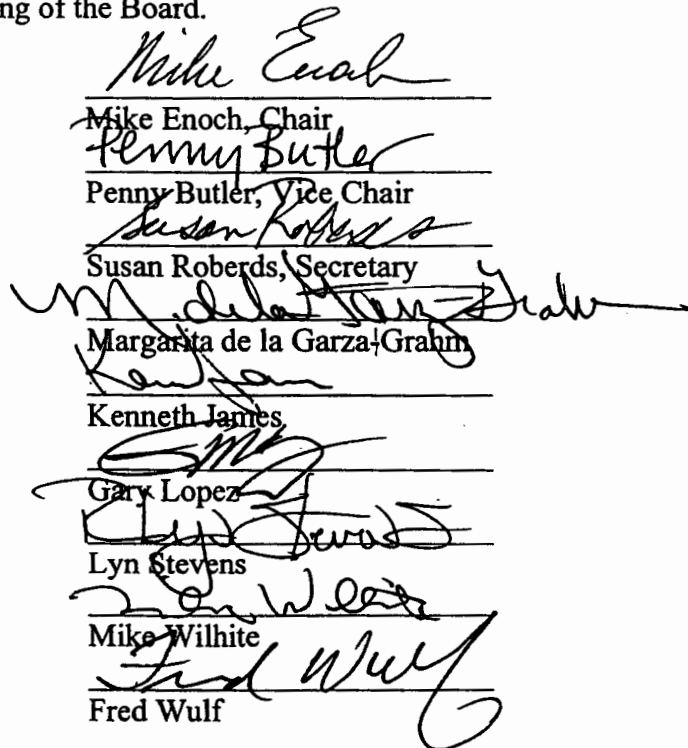 ng of the Board.
Mike Enoch
Mike Enoch, Chair
Penny Butler
Penny Butler, Vice Chair
Susan Roberds
Susan Roberds, Secretary
M. de la Garza-Grahm
Margarita de la Garza-Grahm
Kenneth James
Gary Lopez
Lyn Stevens
Lyn Stevens
Mike Wilhite
Fred Wulf
Fred Wulf